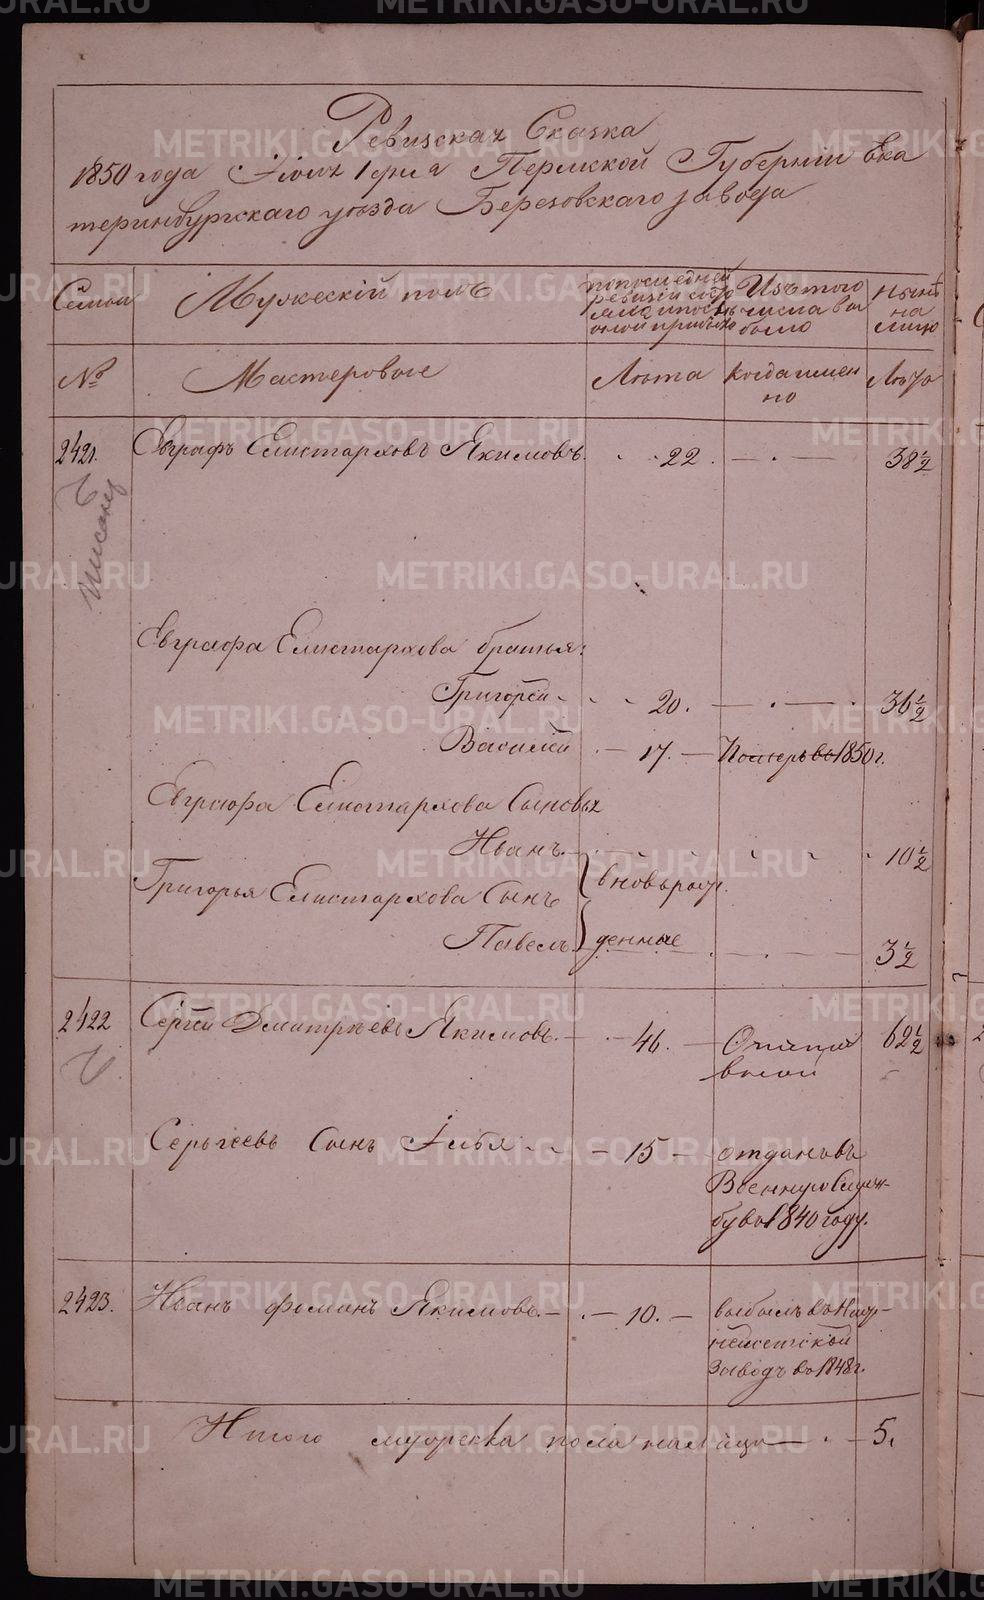 Ревизская Сказка
1850 года Іюня 1 дня Пермской Губерніи Ека
теринбургскаго уѣзда Березовскаго завода
Семьи Мужескій полъ по последней ревизіи состояло и после оной прибыло Изъ того числа вы было Нынѣ на лицо
№ Мастеровые Лѣта Когда имен но Лѣта
2421. Евграфъ Елистарховъ Якимовъ. 22. 38 ½
писанер
Евграфа Елистархова братья:
Григорей 20. 36 ½
Василей 17. Померъ въ 1850 г.
Евграфа Елистархова Сыновья
Иванъ 10 ½
Григорья Елистархова Сынъ вновь рож
Павелъ денные 3 ½
2422 Сергей Дмитріевъ Якимовъ 46. Отста 62 ½
вной
Сергѣевъ Сынъ Илья 15 отданъ въ
Военную Служ-
бу въ 1840 году.
2423. Иванъ Фоминъ Якимовъ 10. выбылъ въ
заводъ въ 1848 г.
Итого мужеска пола на лицо 5.
METRIKI.GASO-URAL.RU